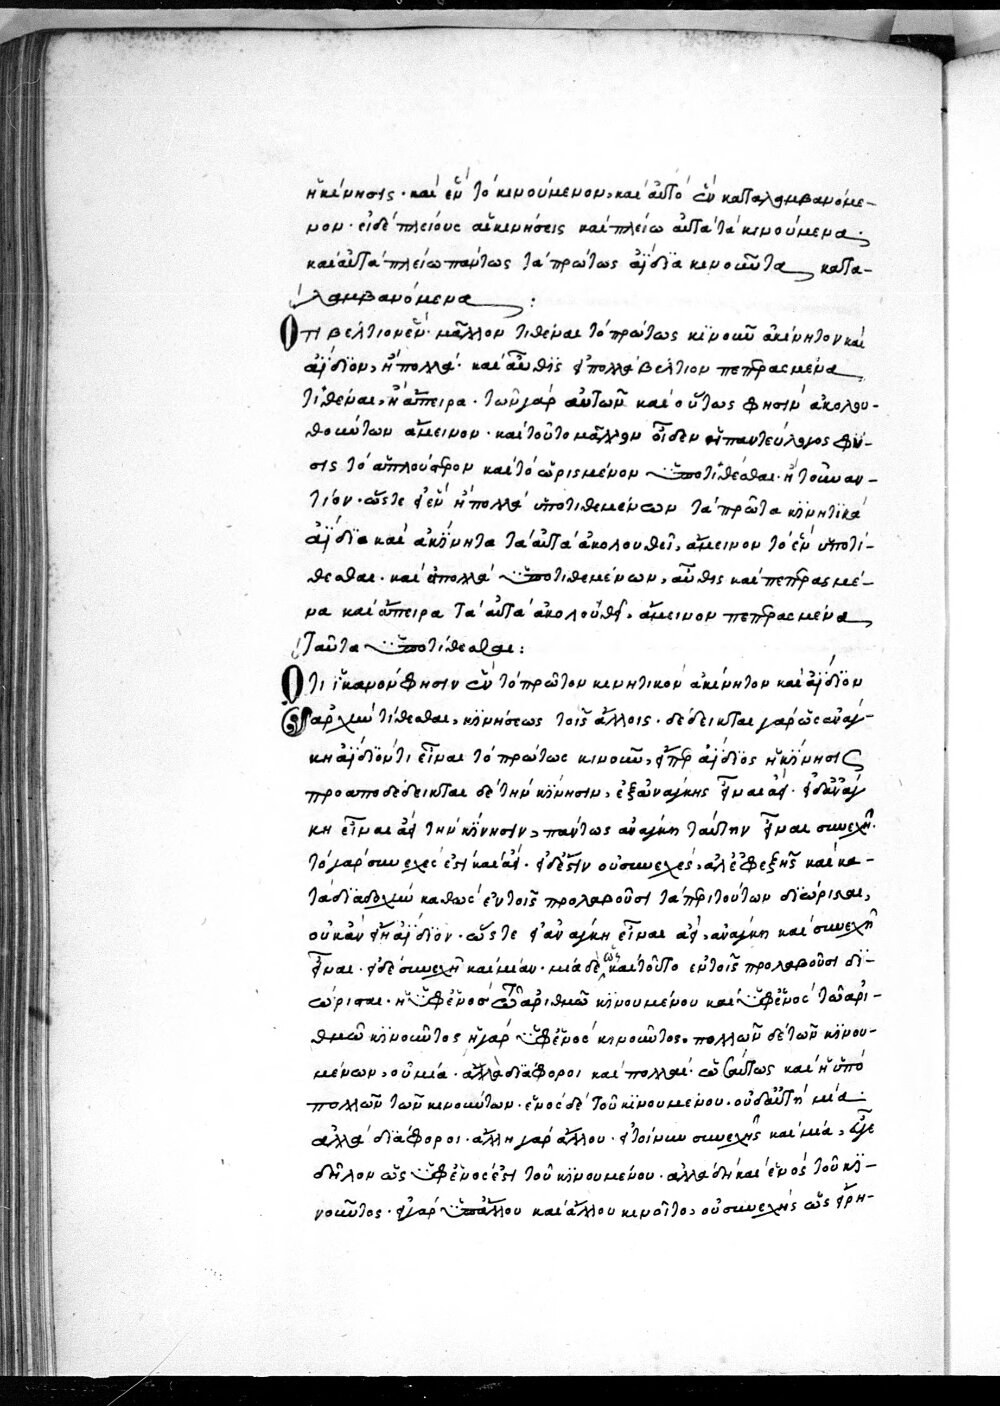 ἡ κίνησις· καὶ ἓν τὸ κινούμενον, καὶ αὐτὸ ἓν καταλαμβανόμε-
νον· εἰ δὲ πλείους αἱ κινήσεις καὶ πλείω αὐτὰ τὰ κινούμενα·
καὶ αὐτὰ πλείω πάντως τὰ πρώτως ἀΐδια κινοῦντα κατα-
λαμβανόμενα:
Ὅτι βέλτιον ἓν μᾶλλον τιθέναι τὸ πρώτως κινοῦν ἀκίνητον καὶ
ἀΐδιον, ἢ πολλά· καὶ αὖθις εἰ πολλὰ βέλτιον πεπερασμένα
τιθέναι, ἢ ἄπειρα· τῶν γὰρ αὐτῶν καὶ οὕτως φησὶν ἀκολου-
θούντων ἄμεινον· καὶ τοῦτο μᾶλλον οἶδεν ἡ παντεύλογος φύ-
σις τὸ ἁπλούστερον καὶ τὸ ὡρισμένον ὑποτίθεσθαι· ἢ τοὐναν-
τίον· ὥστε εἰ ἓν ἢ πολλὰ ὑποτιθεμένων τὰ πρῶτα κινητικὰ
ἀΐδια καὶ ἀκίνητα τὰ αὐτὰ ἀκολουθεῖ, ἄμεινον τὸ ἓν ὑποτί-
θεσθαι· καὶ εἰ πολλὰ ὑποτιθεμένων, αὖθις καὶ πεπερασμέ-
να καὶ ἄπειρα τὰ αὐτὰ ἀκολουθεῖ, ἄμεινον πεπερασμένα
ταῦτα ὑποτίθεσθαι:
Ὅτι ἱκανόν φησιν ἓν τὸ πρῶτον κινητικὸν ἀκίνητον καὶ ἀΐδιον
ἀρχὴν τίθεσθαι, κινήσεως τοῖς ἄλλοις· δέδεικται γὰρ ὡς ἀνάγ-
κη ἀΐδιόν τι εἶναι τὸ πρώτως κινοῦν, εἴπερ ἀΐδιος ἡ κίνησις
προαποδέδεικται δὲ τὴν κίνησιν, ἐξ ἀνάγκης εἶναι ἀεί· εἰ δ' ἀνάγ-
κη εἶναι ἀεὶ τὴν κίνησιν, πάντως ἀνάγκη ταύτην εἶναι συνεχῆ·
τὸ γὰρ συνεχές ἐστι καὶ ἀεί· εἰ δέ ἐστιν οὐ συνεχές, ἀλλ' ἐφεξῆς καὶ κα-
τὰ διαδοχὴν καθὼς ἐν τοῖς προλαβοῦσι τὰ περὶ τούτων διώρισται,
οὐκ ἂν εἴη ἀΐδιον· ὥστε εἰ ἀνάγκη εἶναι ἀεί, ἀνάγκη καὶ συνεχῆ
εἶναι· εἰ δὲ συνεχῆ καὶ μίαν· μία δὲ ὡς καὶ τοῦτο ἐν τοῖς προλαβοῦσι δι-
ώρισται· ἡ ὑφ' ἑνὸς τῷ ἀριθμῷ κινουμένου καὶ ὑφ' ἑνὸς τῷ ἀρι-
θμῷ κινοῦντος ἡ γὰρ ὑφ' ἑνὸς κινοῦντος, πολλῶν δὲ τῶν κινου-
μένων, οὐ μία· ἀλλὰ διάφοροι καὶ πολλαί· ὡσαύτως καὶ ἡ ὑπὸ
πολλῶν τῶν κινούντων· ἑνὸς δὲ τοῦ κινουμένου· οὐδ' αὐτὴ μία·
ἀλλὰ διάφοροι· ἄλλη γὰρ ἄλλου· εἰ τοίνυν συνεχὴς καὶ μία, εἴγε
δῆλον ὡς ὑφ' ἑνός ἐστι τοῦ κινουμένου· ἀλλὰ δὴ καὶ ἑνὸς τοῦ κι-
νοῦντος· εἰ γὰρ ὑπ' ἄλλου καὶ ἄλλου κινοῖτο, οὐ συνεχὴς ὡς εἴρη-